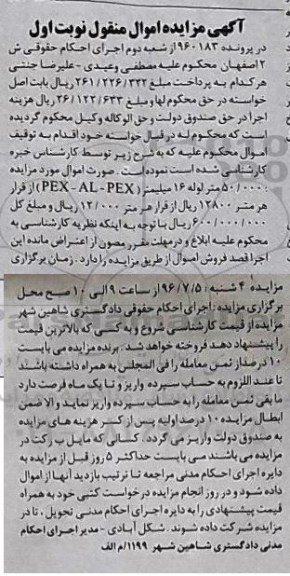 آگهی مزایده اموال منقول نوبت اول
در پرونده ۹۶۰۱۸۳ از شعبه دوم اجرای احکام حقوقی ش
۲ اصفهان محکوم علیه مصطفی وعیدی - علیرضا جنتی
هر کدام به پرداخت مبلغ ۲۶۱/۲۲۶/۳۳۲ ریال بابت اصل
خواسته در حق محکوم لها و مبلغ ۲۶/۱۲۲/۶۳۳ ریال هزینه
اجرا در حق صندوق دولت و حق الوکاله وکیل محکوم گردیده
است که محکوم له در قبل خواسته خود اقدام به توقیف
اموال محکوم علیه که به شرح زیر توسط کارشناس خبره
کارشناسی شده است نموده است. صورت اموال مورد مزایده
۵۰/۰۰۰ متر لوله ۱۶ میلیمتر (PEX-AL-PEX) از قرار
هر متر 12800 ریال از قرار هر متر ۱۲/۰۰۰ ریال و مبلغ کل
۶۰۰/۰۰۰/۰۰۰ ریال با توجه به اینکه نظریه کارشناسی به
محکوم علیه ابلاغ و در مهلت مقرر مصون از اعتراض مانده این
اجرا قصد فروش اموال از طریق مزایده را دارد. زمان برگزاری
مزایده ۴ شنبه: ۹۶/۷/۵ از ساعت ۹ الی ۱۰ صبح محل
برگزاری مزایده: اجرای احکام حقوقی دادگستری شاهین شهر
مزایده از قیمت کارشناسی شروع و به کسی که بالاترین قیمت
را پیشنهاد دهد فروخته خواهد شد. برنده مزایده می بایست
۱۰ درصد از ثمن معامله را فی المجلس به همراه داشته باشند
تا عند اللزوم به حساب سپرده واریز و تا یک ماه فرصت دارد
ما بقی ثمن معامله را به حساب سپرده واریز نماید و الا ضمن
ابطال مزایده ۱۰ درصد اولیه پس از کسر هزینه های مزایده
به صندوق دولت واریز می گردد. کسانی که مایل به شرکت در
مزایده می باشند می بایست حداکثر ۵ روز قبل از مزایده به
دایره اجرای احکام مدنی مراجعه تا ترتیب بازدید آنها از اموال
داده شود و در روز انجام مزایده درخواست کتبی خود به همراه
قیمت پیشنهادی را به دایره اجرای احکام مدنی تحویل، تا در
مزایده شرکت داده شوند. شکل آبادی - مدیر اجرای احکام
مدنی دادگستری شاهین شهر ۱۱۹۹/م الف